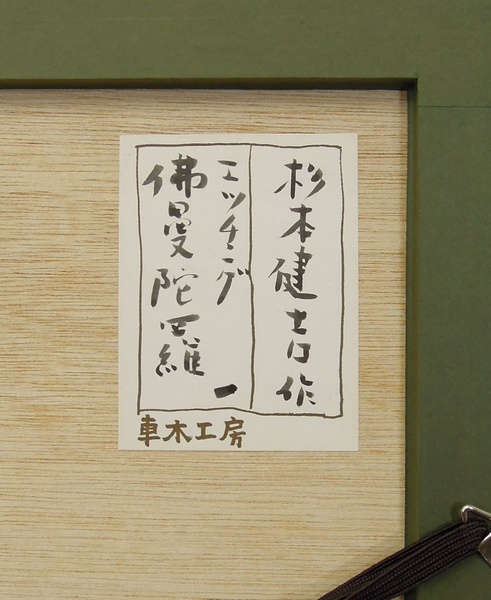 杉本健吉作
エッチング
佛曼陀羅 一
車木工房